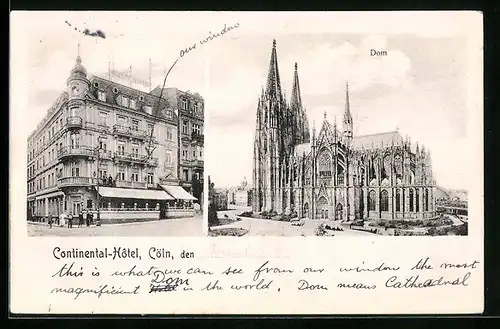 our window
Dom
Continental-Hôtel, Cöln, den
this is what we can see from our window the most
magnificent Dom in the world. Dom means Cathedral